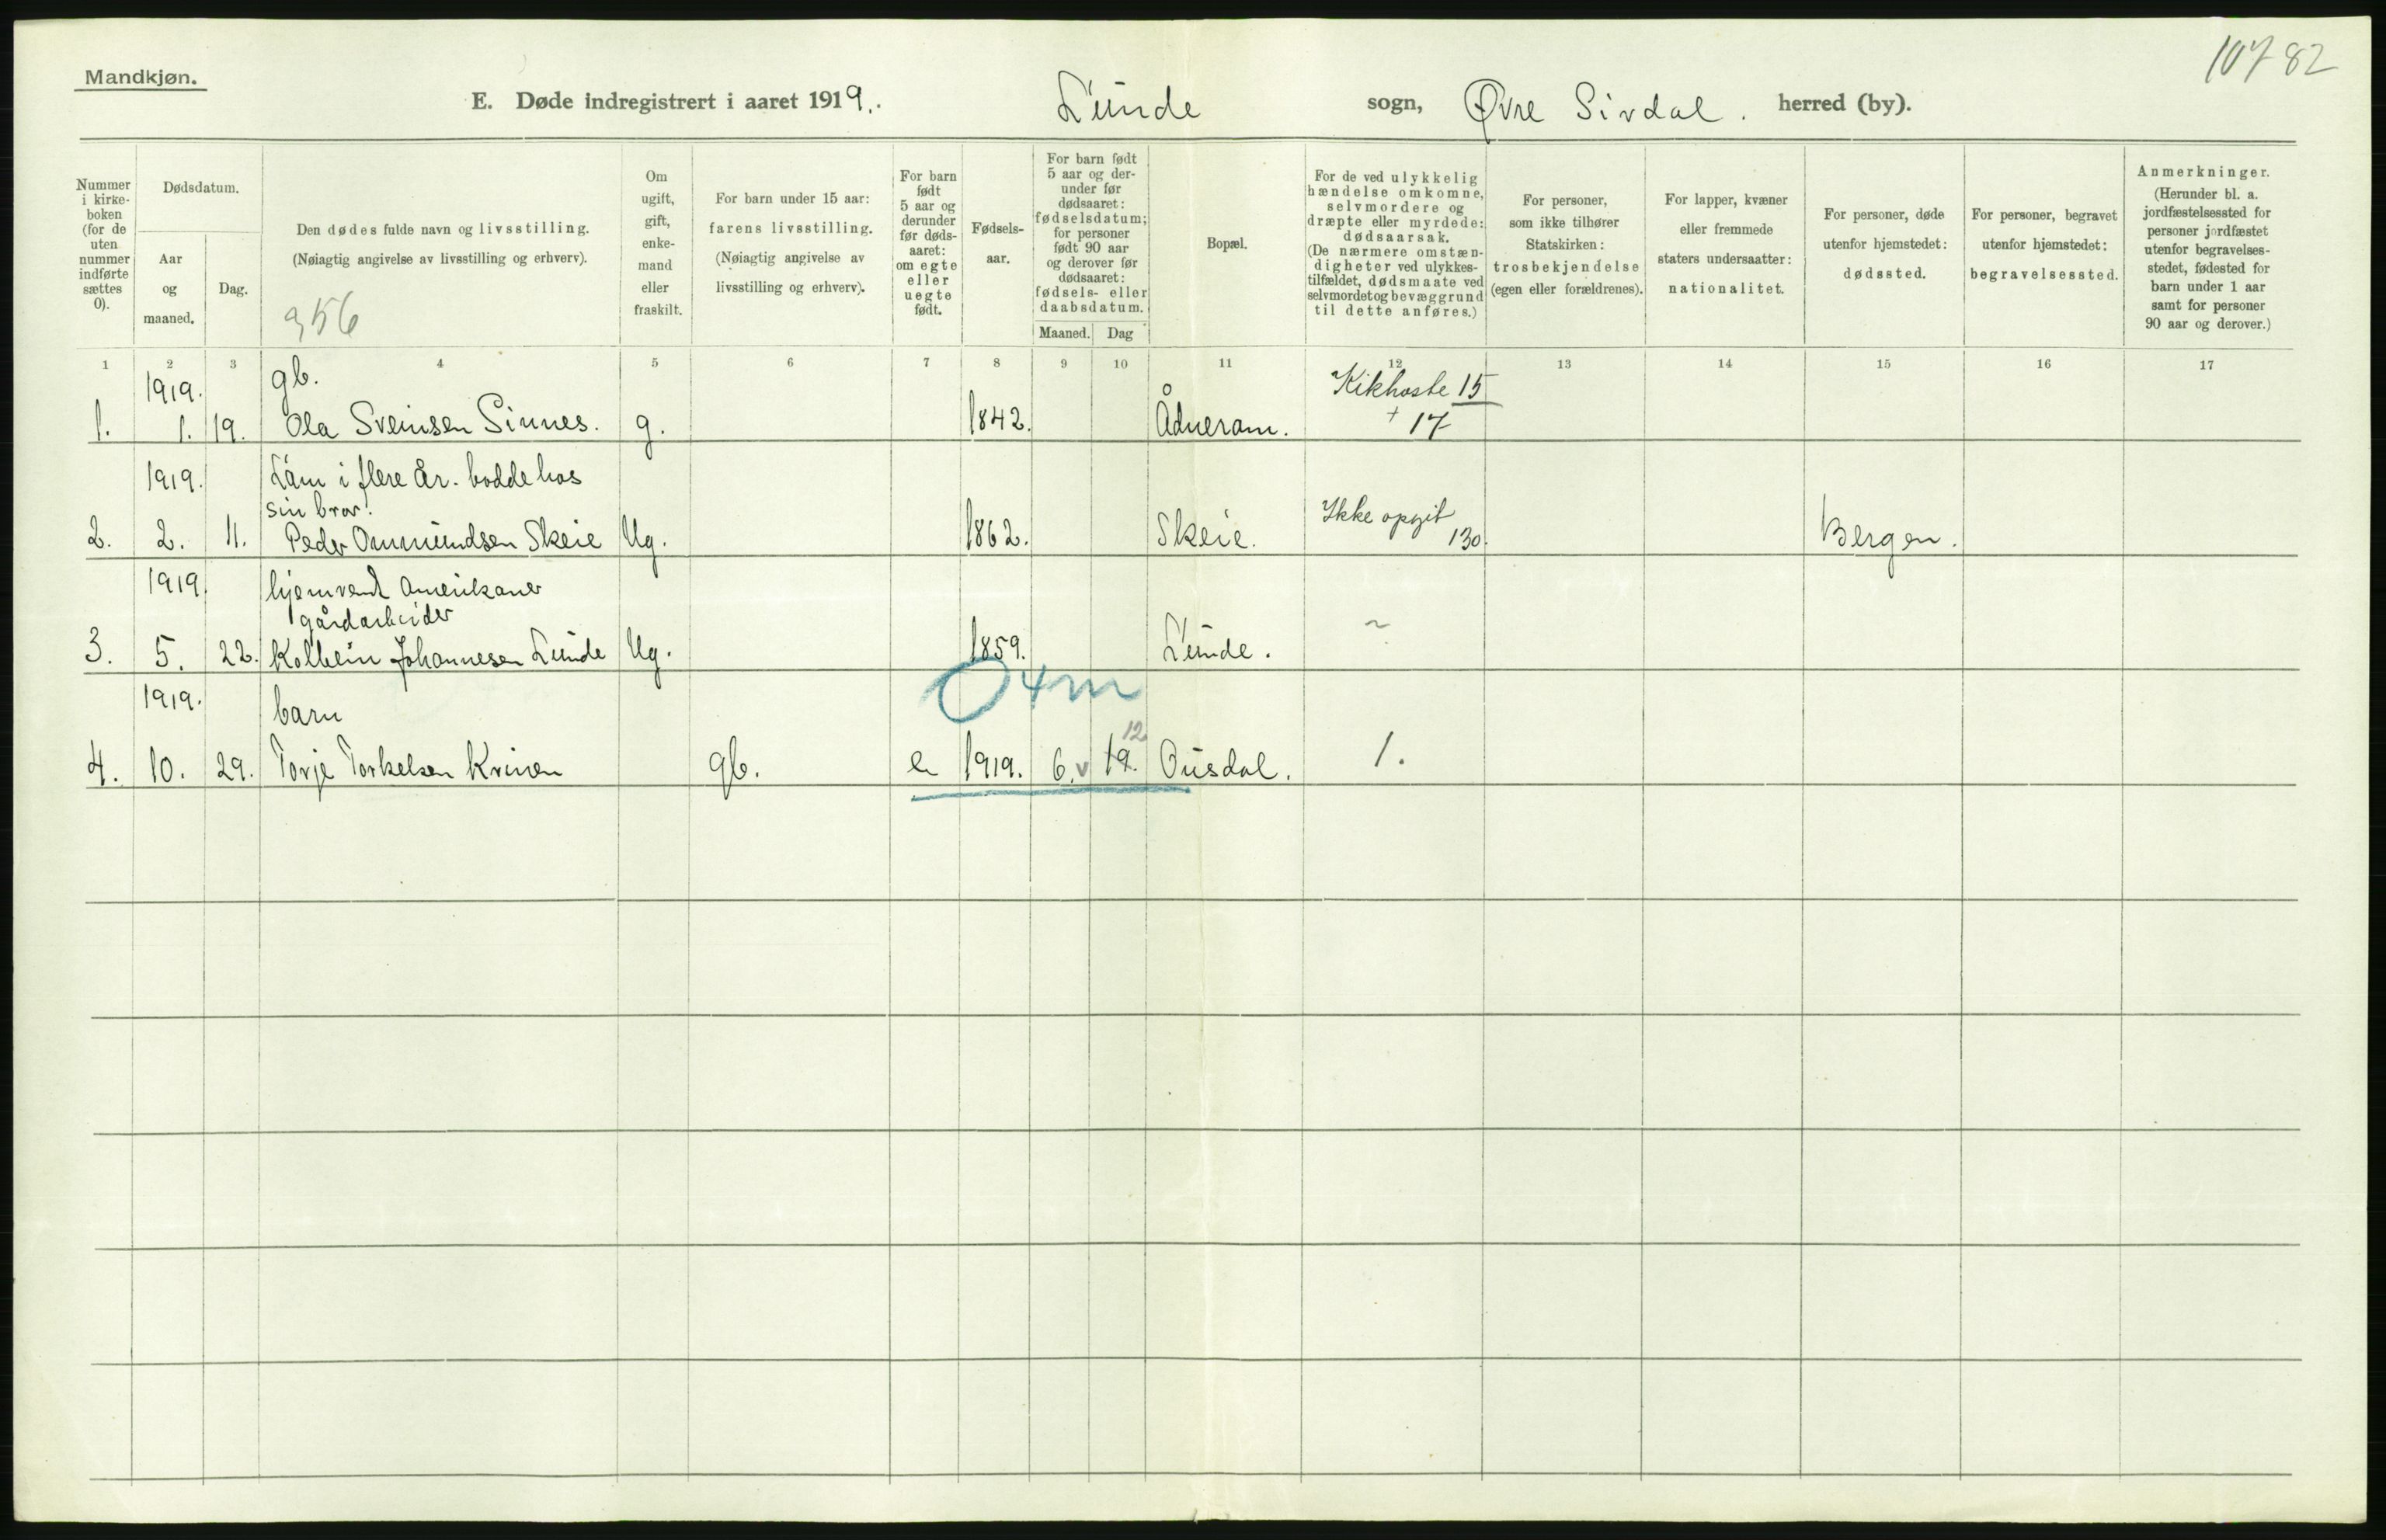 10782
Mandkjøn.
E. Døde indregistrert i aaret 1919. Lunde sogn, Øvre Sirdal. herred (by).
Nummer
i kirke-
boken
(for de
uten
nummer
indførte
sættes
0).
Dødsdatum.
Aar
og
maaned.
Dag.
Den dødes fulde navn og livsstilling.
(Nøiagtig angivelse av livsstilling og erhverv).
956
Om
ugift,
gift,
enke-
mand
eller
fraskilt.
For barn under 15 aar:
farens livsstilling.
(Nøiagtig angivelse av
livsstilling og erhverv).
For barn
født
5 aar og
derunder
før døds-
aaret:
om egte
eller
uegte
født.
Fødsels-
aar.
For barn født
5 aar og der-
under før
dødsaaret:
fødselsdatum;
for personer
født 90 aar
og derover før
dødsaaret:
fødsels- eller
daabsdatum.
Maaned. Dag
Bopæl.
For de ved ulykkelig
hændelse omkomne,
selvmordere og
dræpte eller myrdede:
dødsaarsak.
(De nærmere omstæn-
digheter ved ulykkes-
tilfældet, dødsmaate ved
selvmordet og bevæggrund
til dette anføres.)
For personer,
som ikke tilhører
Statskirken:
trosbekjendelse
(egen eller forældrenes).
For lapper, kvæner
eller fremmede
staters undersaatter:
nationalitet.
For personer, døde
utenfor hjemstedet:
dødssted.
For personer, begravet
utenfor hjemstedet:
begravelsessted.
Anmerkninger.
(Herunder bl. a.
jordfæstelsessted for
personer jordfæstet
utenfor begravelses-
stedet, fødested for
barn under 1 aar
samt for personer
90 aar og derover.)
1 2 3 4 5 6 7 8 9 10 11 12 13 14 15 16 17
1919. gb. Kikhoste 15
1. 1. 19. Ola Sveinsen Sinnes. g. 1842. Ådneram. + 17
1919. Lam i flere år. bodde hos
sin bror. Ikke opgit
2. 2. 11. Peder Ommundsen Skeie Ug. 1862. Skeie. 130. Bergen.
1919. hjemvendt Amerikaner
gårdarbeider
3. 5. 22. Kolbein Johannesen Lunde Ug. 1859. Lunde. ~
1919. barn O4m
12
4. 10. 29. Torje Torkelsen Kvinen gb. e 1919. 6. v 19. Ousdal. 1.